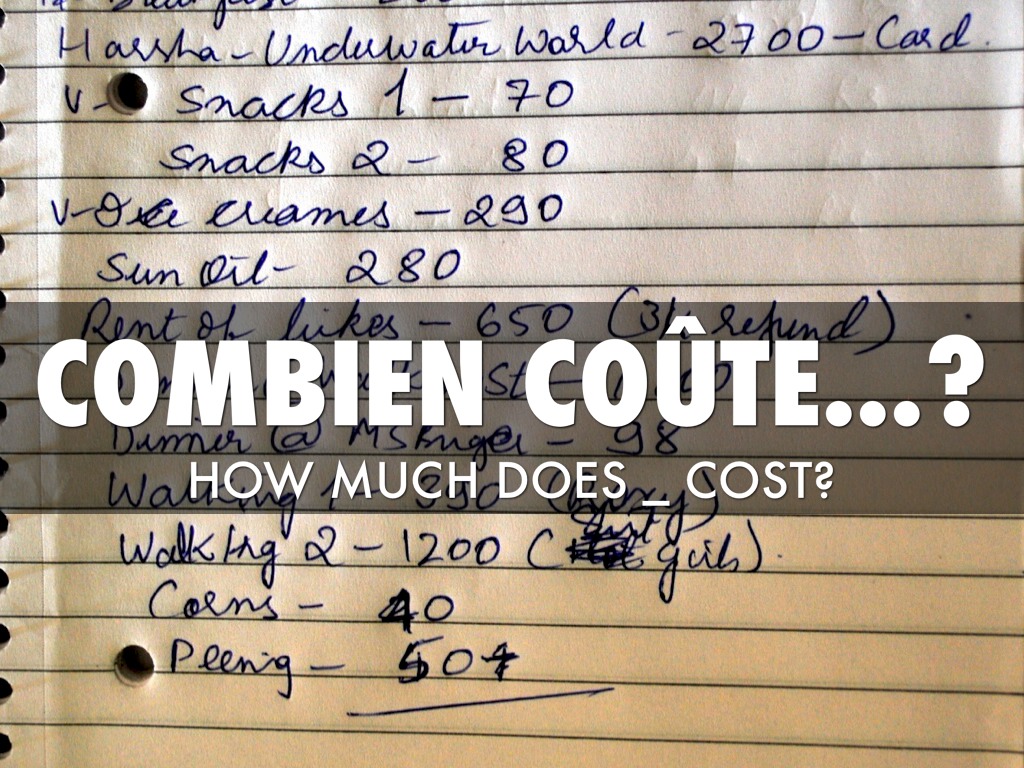 Harsha - Underwater World - 2700 - Card.
V- Snacks 1 - 70
Snacks 2 - 80
V- Ice creames - 290
Sun Oil - 280
Rent of bikes - 650 (refund)
COMBIEN COÛTE...?
Dinner @ MS Burger - 98
HOW MUCH DOES _ COST?
Walking 1 - 350
Walking 2 - 1200 (girls).
Corns - 40